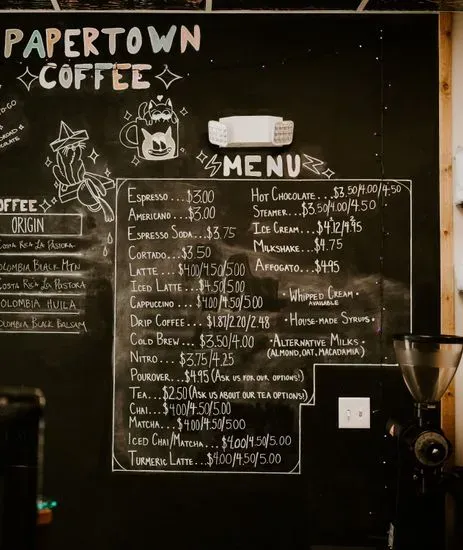 PAPERTOWN
COFFEE
MENU
OFFEE
ORIGIN
COSTA RICA LA PASTORA
OLOMBIA BLACK MTN
COSTA RICA LA PASTORA
OLOMBIA HUILA
OLOMBIA BLACK BALSAM
ESPRESSO....$3.00
AMERICANO...$3.00
ESPRESSO SODA...$3.75
CORTADO...$3.50
LATTE...$4.00/4.50/5.00
ICED LATTE...$4.50/5.00
CAPPUCCINO...$4.00/4.50/5.00
DRIP COFFEE...$1.87/2.20/2.48
COLD BREW...$3.50/4.00
NITRO...$3.75/4.25
POUROVER...$4.95 (ASK US FOR OUR OPTIONS!)
TEA...$2.50 (ASK US ABOUT OUR TEA OPTIONS!)
CHAI...$4.00/4.50/5.00
MATCHA...$4.00/4.50/5.00
ICED CHAI/MATCHA...$4.00/4.50/5.00
TURMERIC LATTE...$4.00/4.50/5.00
HOT CHOCOLATE...$3.50/4.00/4.50
STEAMER...$3.50/4.00/4.50
ICE CREAM...
MILKSHAKE...$4.75
AFFOGATO...$4.95
• WHIPPED CREAM •
AVAILABLE
• HOUSE-MADE SYRUPS •
• ALTERNATIVE MILKS •
(ALMOND, OAT, MACADAMIA)